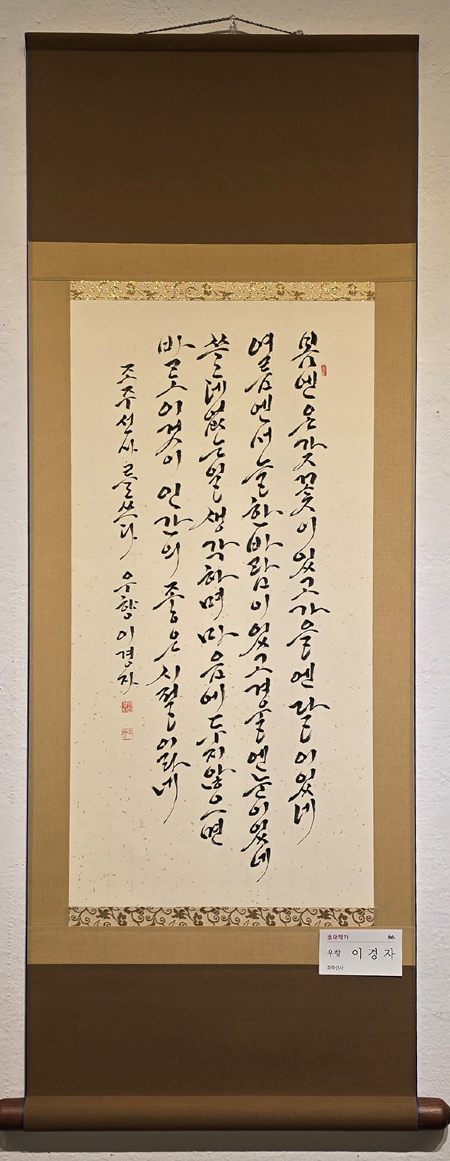 봄엔 온갖 꽃이 있고 가을엔 달이 있네
여름엔 서늘한 바람이 있고 겨울엔 눈이 있네
쓸데없는 일 생각하며 마음에 두지 않으면
바로 이것이 인간의 좋은 시절이라네
조주선사 글을 쓰다 우향 이경자
초대작가
우향 이경자
조주선사